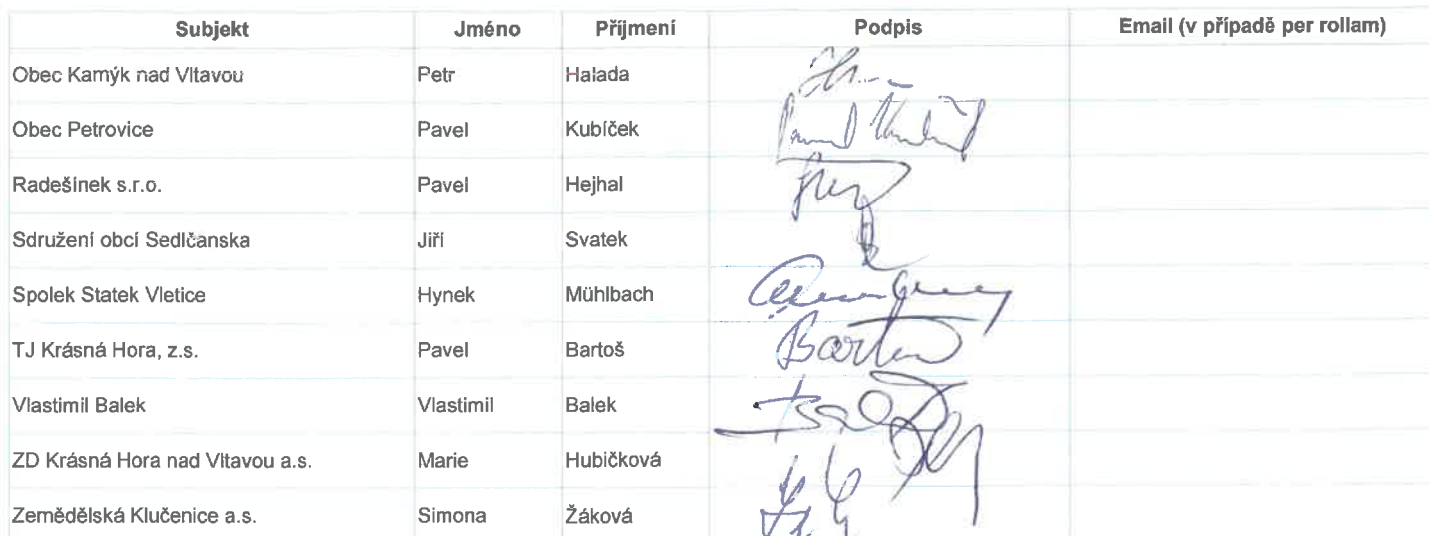 Subjekt Jméno Příjmení Podpis Email (v případě per rollam)
Obec Kamýk nad Vltavou Petr Halada
Obec Petrovice Pavel Kubíček
Radešínek s.r.o. Pavel Hejhal
Sdružení obcí Sedlčanska Jiří Svatek
Spolek Statek Vletice Hynek Mühlbach
TJ Krásná Hora, z.s. Pavel Bartoš
Vlastimil Balek Vlastimil Balek
ZD Krásná Hora nad Vltavou a.s. Marie Hubičková
Zemědělská Klučenice a.s. Simona Žáková